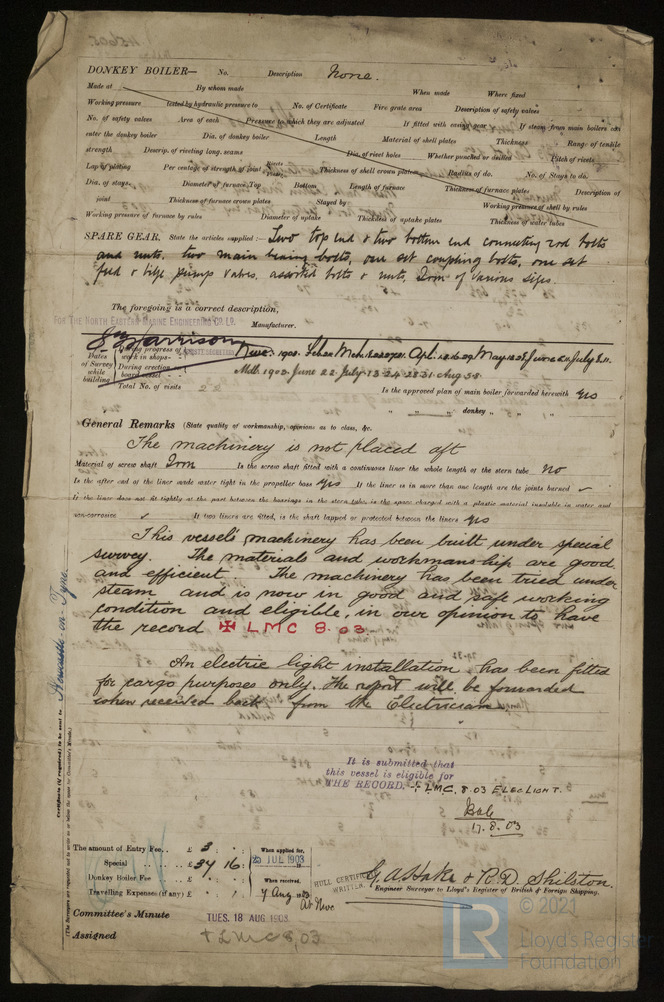 DONKEY BOILER— No. Description None.
Made at By whom made When made Where fixed
Working pressure tested by hydraulic pressure to No. of Certificate Fire grate area Description of safety valves
No. of safety valves Area of each Pressure to which they are adjusted If fitted with easing gear If steam from main boilers can
enter the donkey boiler Dia. of donkey boiler Length Material of shell plates Thickness Range of tensile
strength Descrip. of riveting long. seams Dia. of rivet holes Whether punched or drilled Pitch of rivets
Lap of plating Per centage of strength of joint Rivets Thickness of shell crown plates Radius of do. No. of Stays to do.
Dia. of stays. Diameter of furnace Top Bottom Length of furnace Thickness of furnace plates Description of
joint Thickness of furnace crown plates Stayed by Working pressure of shell by rules
Working pressure of furnace by rules Diameter of uptake Thickness of uptake plates Thickness of water tubes
SPARE GEAR. State the articles supplied:— Two top end & two bottom end connecting rod bolts
and nuts, two main bearing bolts, one set coupling bolts, one set
feed & bilge pump valves, assorted bolts & nuts, Iron of various sizes.
The foregoing is a correct description,
FOR THE NORTH EASTERN MARINE ENGINEERING CO. LD. Manufacturer.
Harrison
Dates of Survey while building
During progress of work in shops
During erection on board vessel
Total No. of visits 22
Is the approved plan of main boiler forwarded herewith Yes
" " donkey " "
General Remarks (State quality of workmanship, opinions as to class, &c.
The machinery is not placed aft
Material of screw shaft Iron Is the screw shaft fitted with a continuous liner the whole length of the stern tube No
Is the after end of the liner made water tight in the propeller boss Yes If the liner is in more than one length are the joints burned ✓
If the liner does not fit tightly at the part between the bearings in the stern tube, is the space charged with a plastic material insoluble in water and
non-corrosive ✓ If two liners are fitted, is the shaft lapped or protected between the liners Yes
This vessel's machinery has been built under special
survey. The materials and workmanship are good
and efficient. The machinery has been tried under
steam and is now in good and safe working
condition and eligible, in our opinion to have
the record ✠ LMC 8.03
An electric light installation has been fitted
for cargo purposes only. The report will be forwarded
when received back from the Electrician
Newcastle-on-Tyne.
Certificate (if required) to be sent to
It is submitted that
this vessel is eligible for
THE RECORD. + LMC. 8.03 ELEC LIGHT.
17.8.03
The amount of Entry Fee.. £ 3 : When applied for,
Special £ 34 16 : 25 JUL 1903
Donkey Boiler Fee £ When received.
Travelling Expenses (if any) £ 7 Aug 03
At Nwc
HULL CERTIFICATE WRITTEN.
G. A. Hake & R. D. Shilston.
Engineer Surveyor to Lloyd's Register of British & Foreign Shipping.
Committee's Minute TUES. 18 AUG 1903
Assigned + LMC 8,03
© 2021
LR Lloyd's Register
Foundation